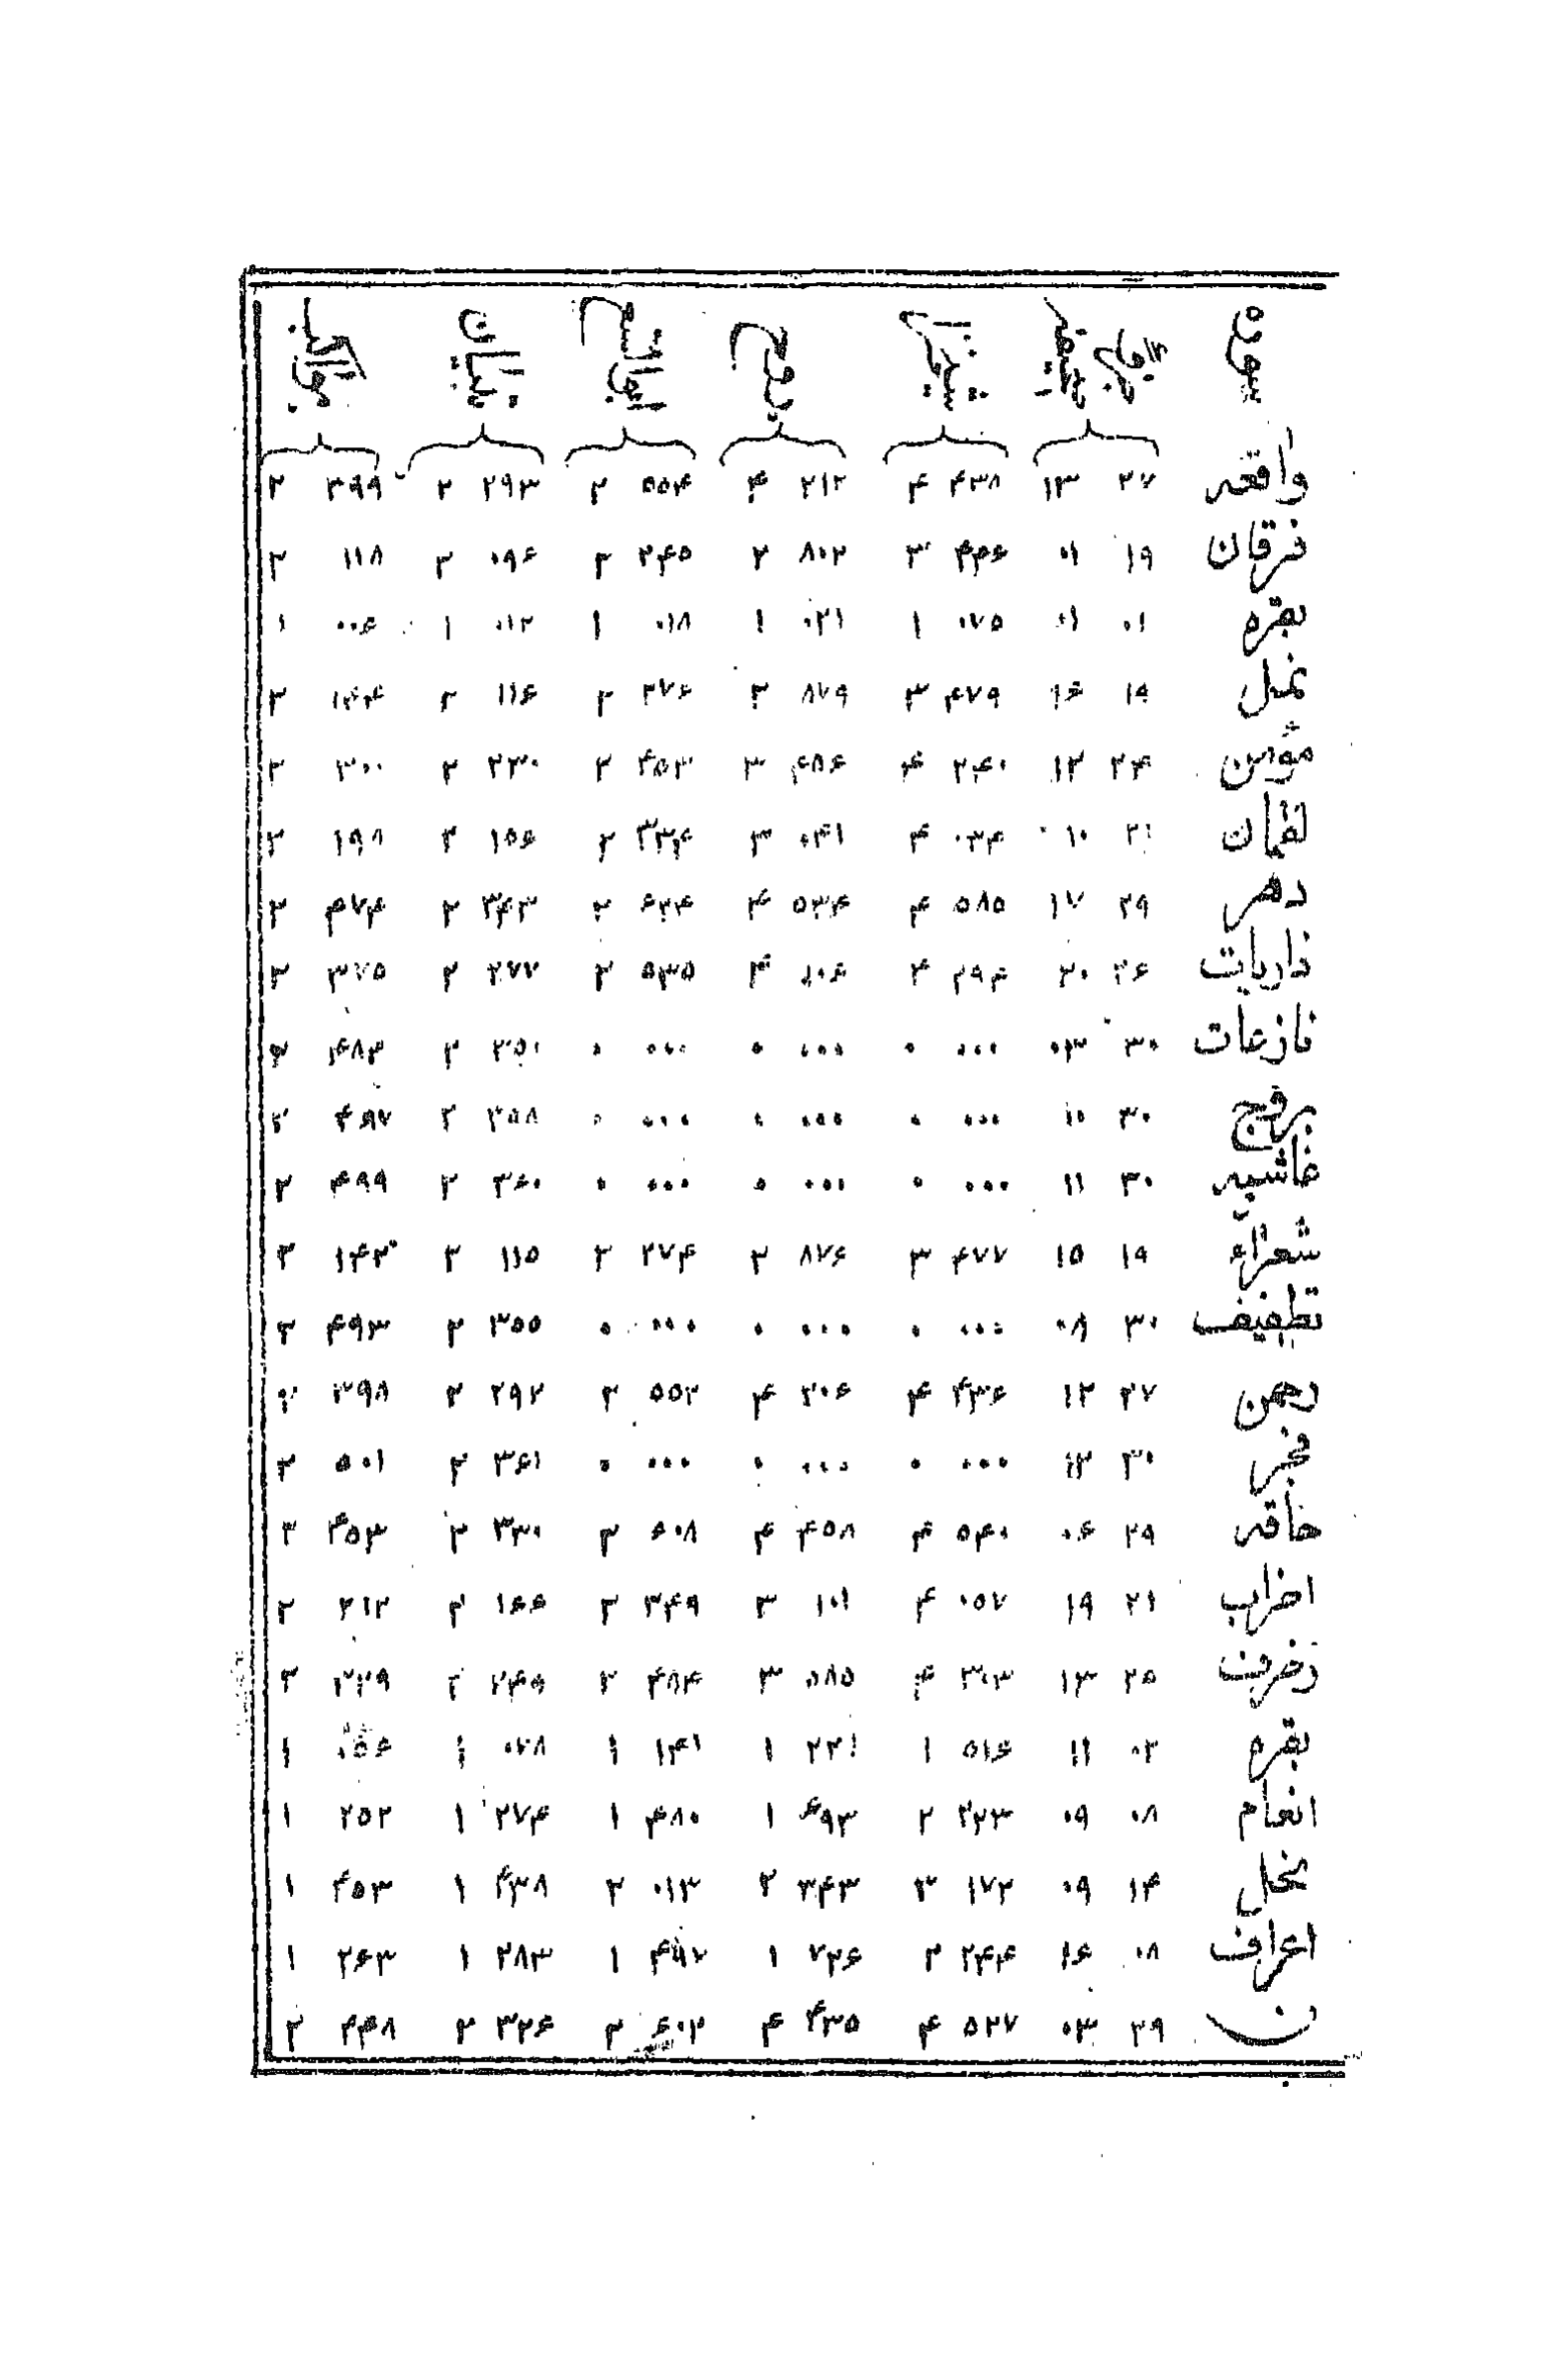 واقعه ۲۷ ۱۳ ۴۳۸ ۴ ۲۱۲ ۴ ۵۵۴ ۲ ۲۹۳ ۲ ۳۹۹ ۲
فرقان ۱۹ ۰۱ ۴۴۶ ۳ ۸۰۲ ۲ ۲۴۵ ۲ ۰۹۶ ۲ ۱۱۸ ۲
بقره ۰۱ ۰۱ ۰۷۵ ۱ ۰۲۱ ۱ ۰۱۸ ۱ ۰۱۲ ۱ ۰۰۶ ۱
نمل ۱۹ ۱۶ ۴۷۹ ۳ ۸۷۹ ۲ ۲۷۶ ۲ ۱۱۶ ۲ ۱۴۴ ۲
مؤمن ۲۴ ۱۲ ۲۴۰ ۴ ۴۸۶ ۳ ۴۵۳ ۲ ۲۳۰ ۲ ۳۰۰ ۲
لقمان ۲۱ ۱۰ ۰۳۴ ۴ ۰۴۱ ۳ ۳۳۴ ۲ ۱۵۶ ۲ ۱۹۸ ۲
دهر ۲۹ ۱۷ ۵۸۵ ۴ ۵۳۴ ۴ ۶۲۴ ۲ ۳۴۳ ۲ ۴۷۴ ۲
ذاریات ۲۶ ۲۰ ۲۹۴ ۴ ۱۰۶ ۴ ۵۳۵ ۲ ۲۷۷ ۲ ۳۷۵ ۲
نازعات ۳۰ ۰۳ ۰۰۰ ۰ ۰۰۰ ۰ ۰۰۰ ۰ ۳۵۰ ۲ ۴۸۳ ۲
بروج ۳۰ ۱۰ ۰۰۰ ۰ ۰۰۰ ۰ ۰۰۰ ۰ ۳۵۸ ۲ ۴۹۷ ۲
غاشیه ۳۰ ۱۱ ۰۰۰ ۰ ۰۰۰ ۰ ۰۰۰ ۰ ۳۶۰ ۲ ۴۹۹ ۲
شعراء ۱۹ ۱۵ ۴۷۷ ۳ ۸۷۶ ۲ ۲۷۴ ۲ ۱۱۵ ۲ ۱۴۳ ۲
تطفیف ۳۰ ۰۸ ۰۰۰ ۰ ۰۰۰ ۰ ۰۰۰ ۰ ۳۵۵ ۲ ۴۹۳ ۲
رحمن ۲۷ ۱۲ ۴۳۶ ۴ ۲۰۶ ۴ ۵۵۲ ۲ ۲۹۲ ۲ ۳۹۸ ۲
فجر ۳۰ ۱۲ ۰۰۰ ۰ ۰۰۰ ۰ ۰۰۰ ۰ ۳۶۱ ۲ ۵۰۱ ۲
حاقه ۲۹ ۰۶ ۵۴۰ ۴ ۴۵۸ ۴ ۶۰۸ ۲ ۳۳۰ ۲ ۴۵۳ ۲
احزاب ۲۱ ۱۹ ۰۵۷ ۴ ۱۰۱ ۳ ۳۴۹ ۲ ۱۶۶ ۲ ۲۱۲ ۲
زخرف ۲۵ ۱۳ ۳۰۳ ۴ ۵۸۵ ۳ ۴۸۴ ۲ ۲۴۵ ۲ ۳۲۹ ۲
بقره ۰۲ ۱۱ ۵۱۶ ۱ ۲۲۱ ۱ ۱۴۱ ۱ ۰۷۸ ۱ ۰۵۶ ۱
انعام ۰۸ ۰۹ ۲۲۳ ۲ ۶۹۳ ۱ ۴۸۰ ۱ ۲۷۴ ۱ ۲۵۲ ۱
نحل ۱۴ ۰۹ ۱۷۲ ۳ ۳۴۳ ۲ ۰۱۳ ۲ ۴۳۸ ۱ ۴۵۳ ۱
اعراف ۰۸ ۱۶ ۲۴۴ ۲ ۷۳۶ ۱ ۴۹۷ ۱ ۲۸۳ ۱ ۲۶۳ ۱
ن ۲۹ ۰۳ ۵۲۷ ۴ ۴۳۵ ۴ ۶۰۲ ۲ ۳۲۶ ۲ ۴۴۸ ۲